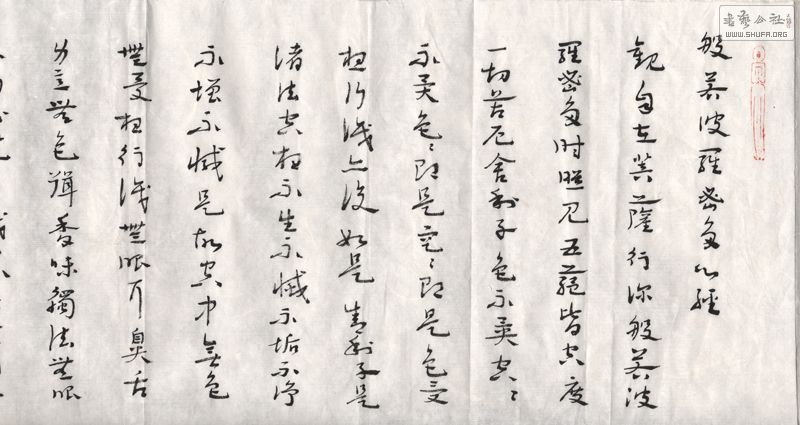 般若波羅蜜多心經
觀自在菩薩行深般若波
羅蜜多時照見五蘊皆空度
一切苦厄舍利子色不異空〻
不異色〻即是空〻即是色受
想行識亦復如是舍利子是
諸法空相不生不滅不垢不淨
不增不減是故空中無色
無受想行識無眼耳鼻舌
身意無色聲香味觸法無眼
書藝公社
WWW.SHUFA.ORG